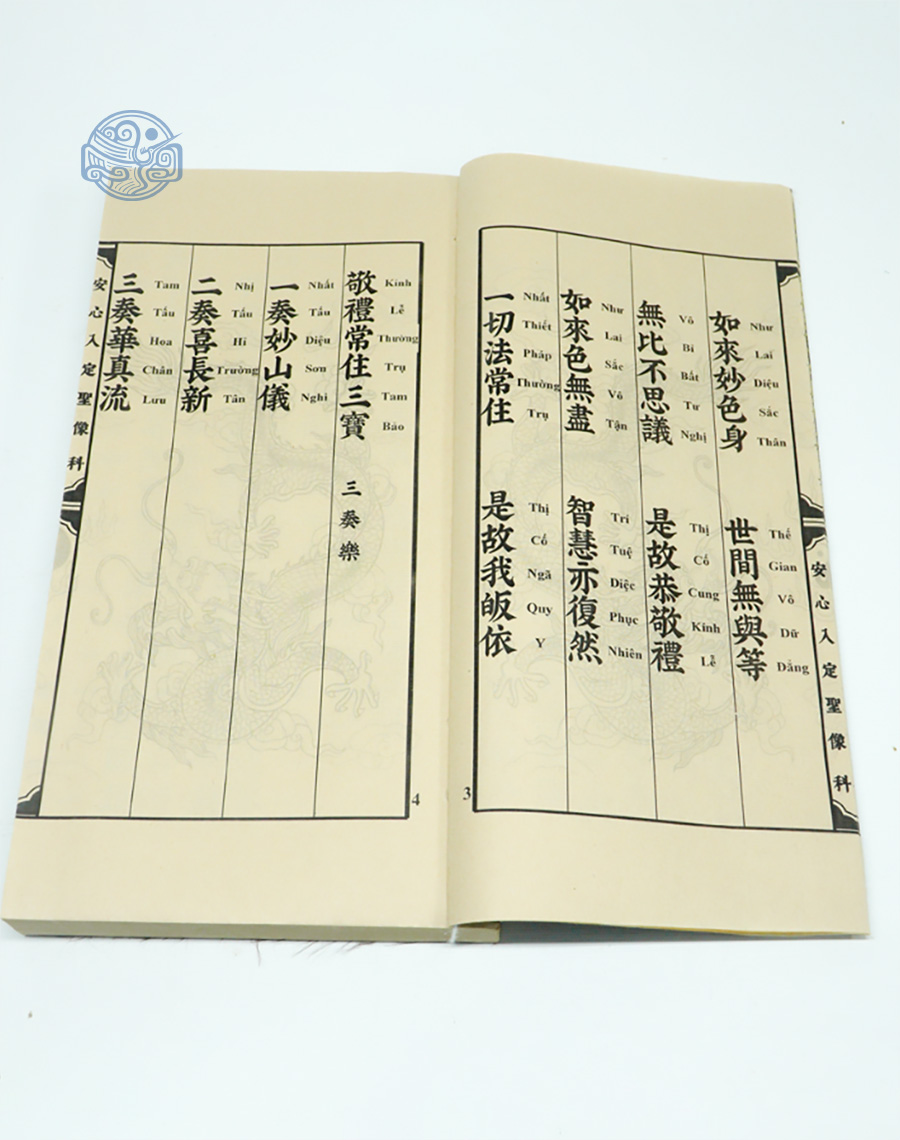 如來妙色身 世間無與等
Như Lai Diệu Sắc Thân Thế Gian Vô Dữ Đẳng
無比不思議 是故恭敬禮
Vô Bỉ Bất Tư Nghị Thị Cố Cung Kính Lễ
如來色無盡 智慧亦復然
Như Lai Sắc Vô Tận Trí Tuệ Diệc Phục Nhiên
一切法常住 是故我皈依
Nhất Thiết Pháp Thường Trụ Thị Cố Ngã Quy Y
安心入定聖像科
3
敬禮常住三寶 三奏樂
Kính Lễ Thường Trụ Tam Bảo
一奏妙山儀
Nhất Tấu Diệu Sơn Nghi
二奏喜長新
Nhị Tấu Hỉ Trường Tân
三奏華真流
Tam Tấu Hoa Chân Lưu
安心入定聖像科
4